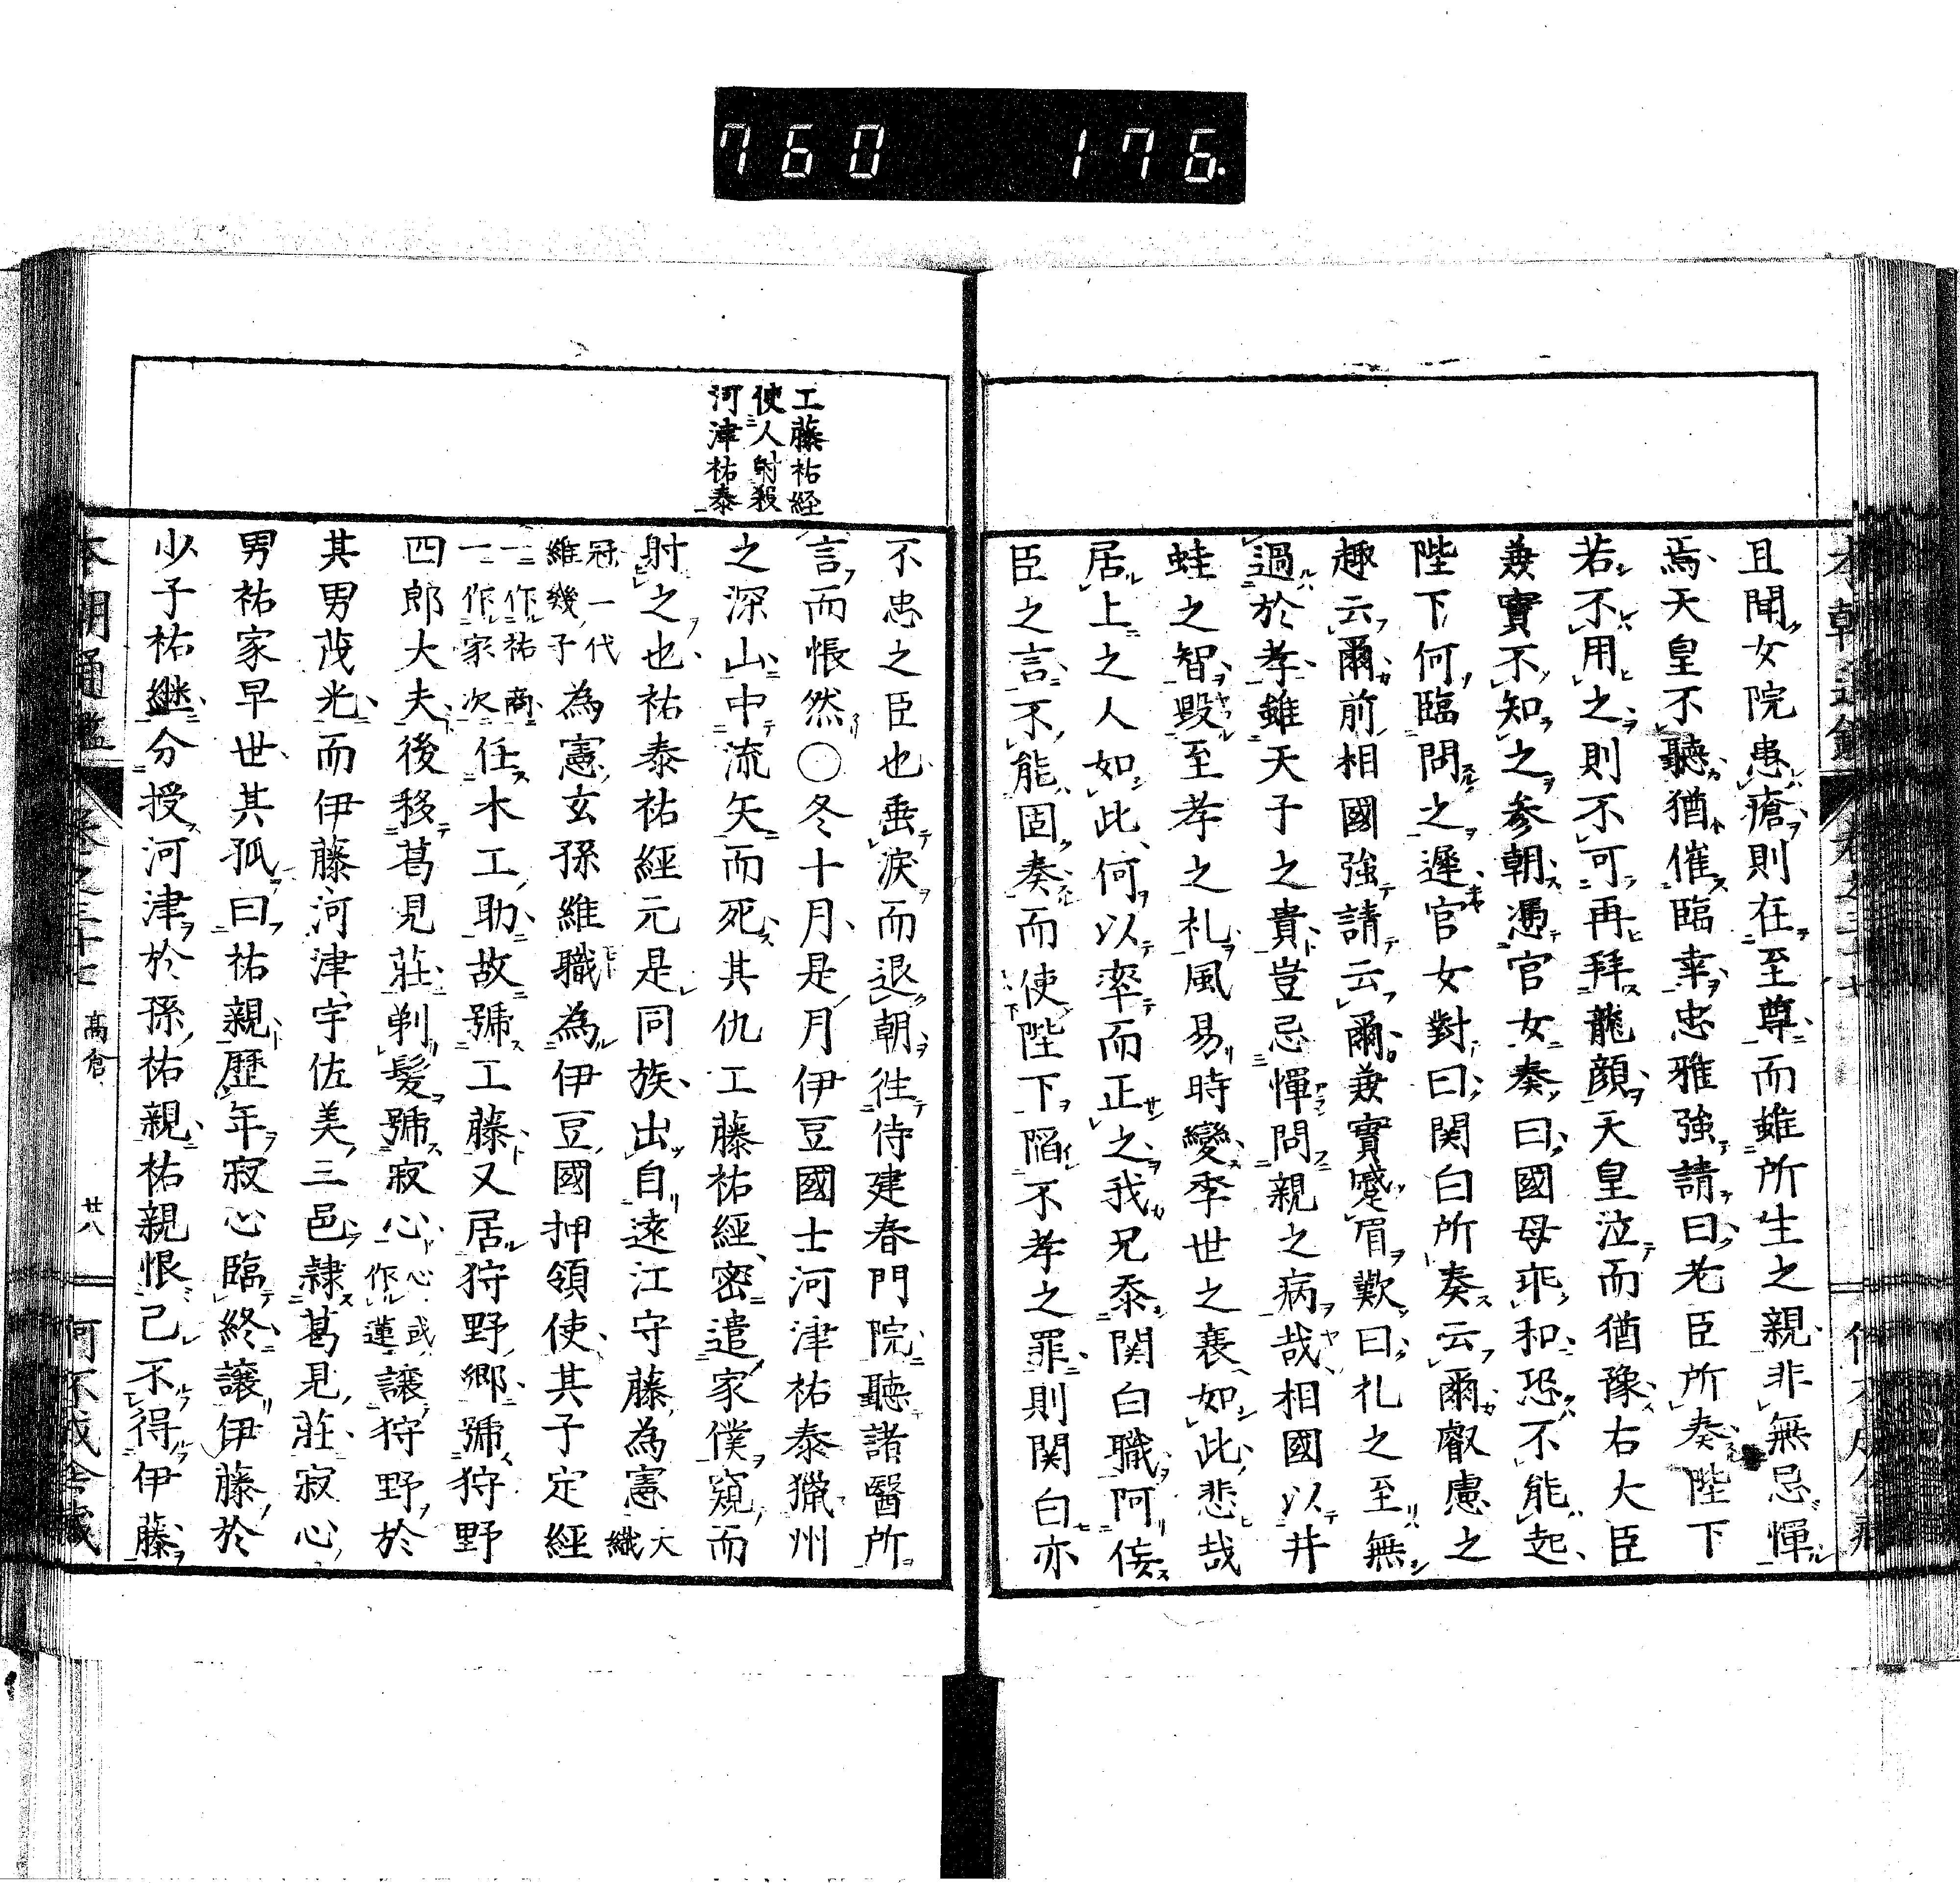 760 176.
且聞女院患瘡則在至尊而雖所生之親非無忌憚
焉天皇不聽猶催臨幸忠雅強請曰老臣所奏陛下
若不用之則不可再拜龍顔天皇泣而猶豫右大臣
兼實不知之参朝憑官女奏曰國母乖和恐不能起
陛下何臨問之遲官女對曰関白所奏云爾叡慮之
趣云爾前相國強請云爾兼實蹙眉歎曰礼之至無
過於孝雖天子之貴豈忌憚問親之病哉相國以井
蛙之智毀至孝之礼風易時變季世之衰如此悲哉
居上之人如此何以率而正之我兄忝関白職阿侫
臣之言不能固奏而使陛下陷不孝之罪則関白亦
工藤祐経
使人射殺
河津祐泰
不忠之臣也垂淚而退朝往侍建春門院聽諸醫所
言而悵然○冬十月是月伊豆國士河津祐泰獵州
之深山中流矢而死其仇工藤祐經密遣家僕窺而
射之也祐泰祐經元是同族出自遠江守藤為憲大織
冠一代維幾子為憲玄孫維職為伊豆國押領使其子定經
一二作祐商一作家次任木工助故號工藤又居狩野郷號狩野
四郎大夫後移葛見莊剃髮號寂心心或作蓮讓狩野於
其男茂光而伊藤河津宇佐美三邑隷葛見莊寂心
男祐家早世其孤曰祐親歷年寂心臨終讓伊藤於
少子祐継分授河津於孫祐親祐親恨己不得伊藤
本朝通鑑 卷之三十七 高倉 廿八